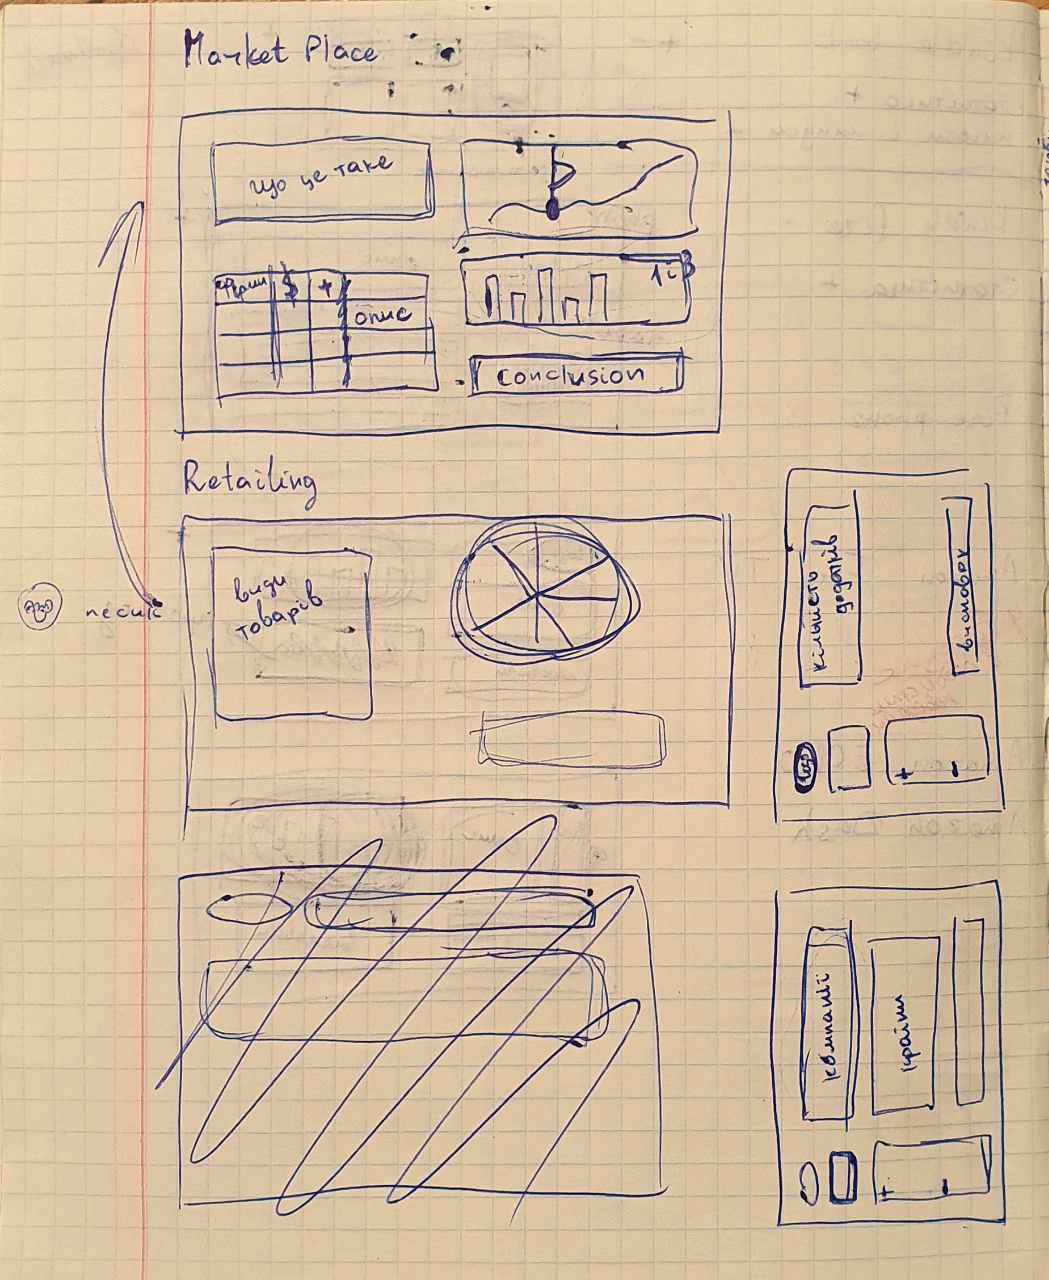 Market Place
що це таке
фірми $ +
опис
1 і 3
conclusion
Retailing
види
товарів
лого
кількість
додатків
висновок
лого
+ -
компанії
країни
+ -